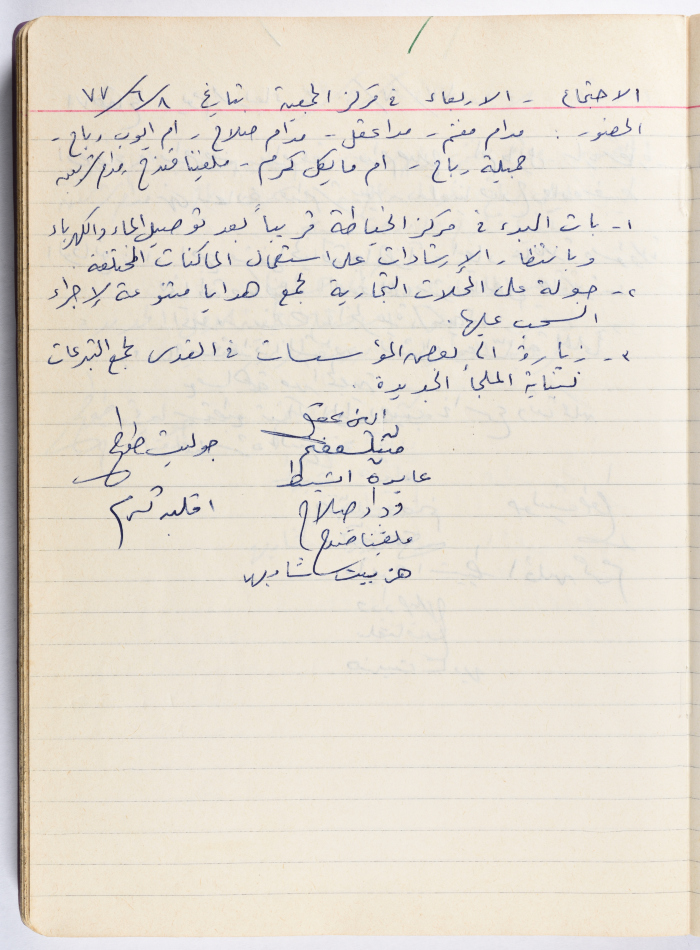 الاجتماع - الاربعاء في مركز الجمعية بتاريخ ٨/٦/٧٧
الحضور : مدام مغنم - مدا عقل - مدام صلاح - ام ايوب رباح -
جميلة رباح - ام مايكل كرم - ملفينا قندح - مدام
١- بات البدء في مركز الخياطة قريباً بعد توصيل الماء والكهرباء
وبانتظار الإرشادات على استعمال الماكنات المختلفة
٢- جولة على المحلات التجارية لجمع هدايا متنوعة لإجراء
السحب عليها
٣- زيارة الى بعض المؤسسات في القدس لجمع التبرعات
لبناية الملجأ الجديدة.
عقل
مغنم جولييت
عايدة
وداد صلاح كرم
ملفينا قندح